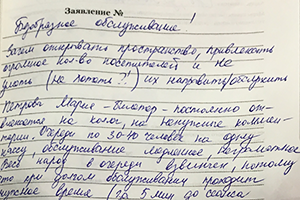 Заявление №
Безобразное обслуживание!
Зачем открывать пространство, привлекать
огромное кол-во посетителей и не
уметь (не хотеть?!) их направить/обслужить
Петрова Мария - кассир - постоянно от-
влекается на коллег, на ненужные коммен-
тарии. Очереди по 30-40 человек на одну
кассу, обслуживание медленное, безграмотное
Весь народ в очереди взвинчен, потому
что при таком обслуживании проходит
нужное время (за 5 мин до сеанса